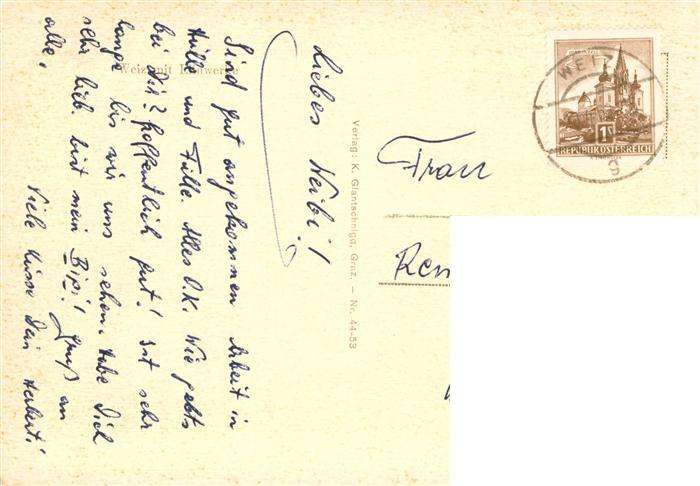 Liebes Weibi!
Sind gut angekommen Arbeit in
Hülle und Fülle. Alles O.K. Wie gehts
bei Dir? hoffentlich gut! Ist sehr
lange bis wir uns sehen. Habe Dich
sehr lieb. bist mein Bipi! Gruß an
alle,
Viele Küsse Dein Herbert!
Weiz mit
Verlag: K. Glantschnigg, Graz. – Nr. 44-53
Frau
Ren
WEIZ
9
1S
REPUBLIK ÖSTERREICH